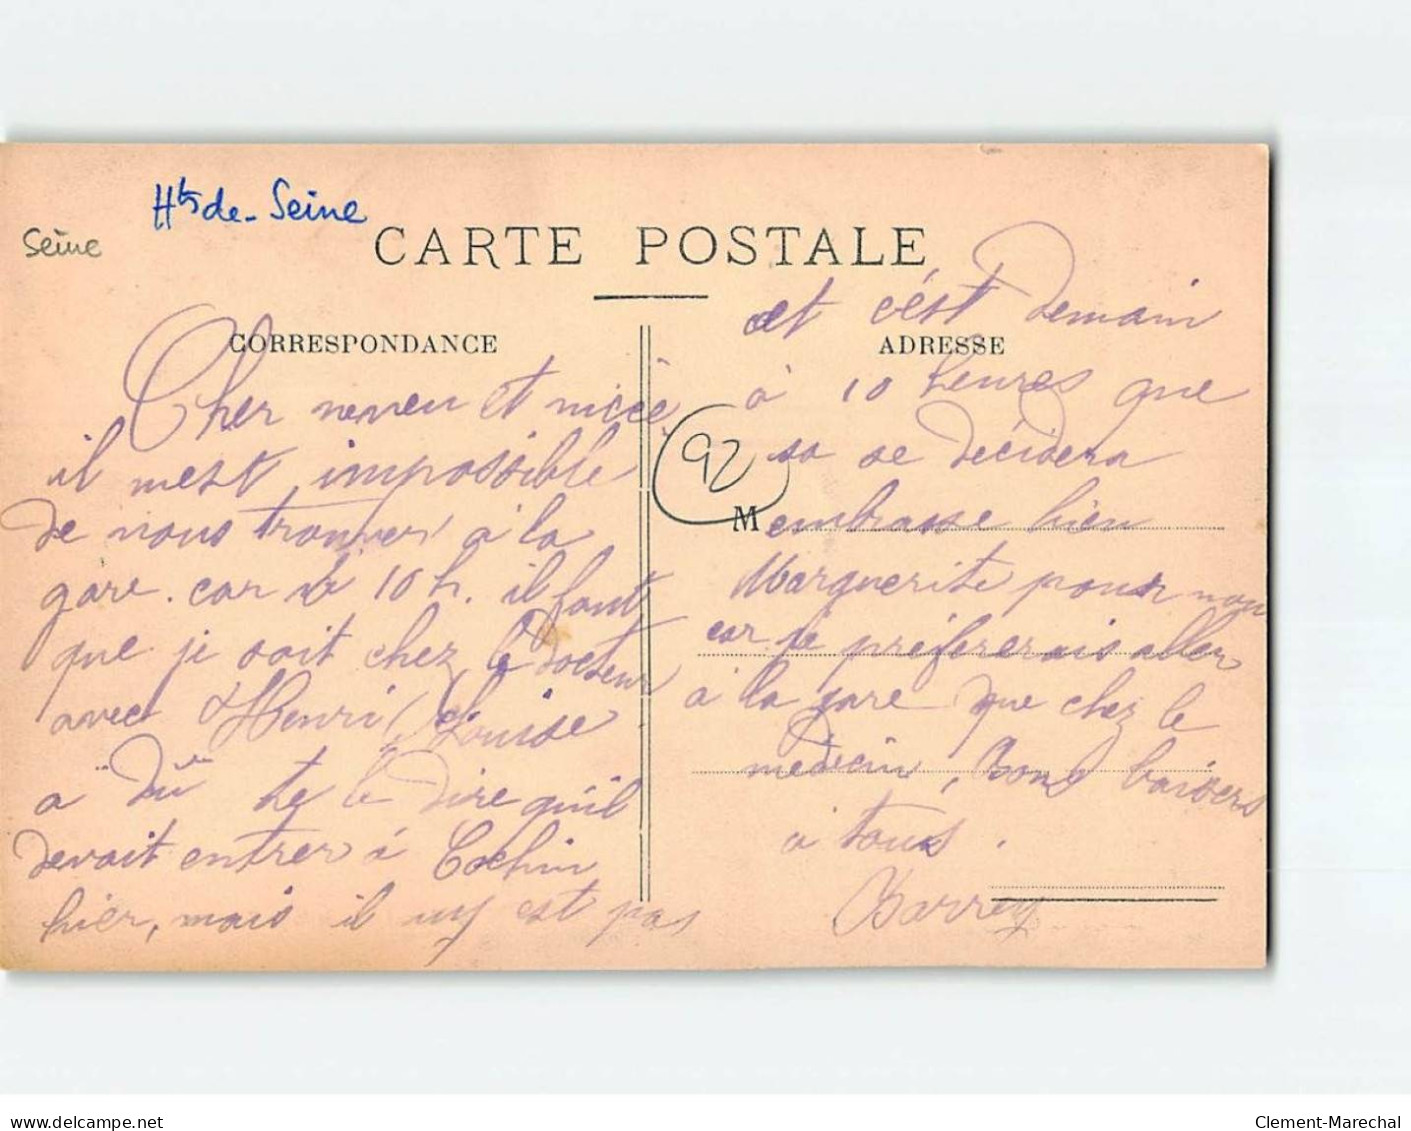 Hts de-Seine
Seine
CARTE POSTALE
CORRESPONDANCE
Cher neveu et nièce
il mest impossible
de vous trouver à la
gare. car à 10 h. il faut
que je soit chez le docteur
avec Henri, Louise
a dû te le dire qu'il
devait entrer à Cochin
hier, mais il ny est pas
et c'est Demain
ADRESSE
à 10 heures que
92
sa se décidera
M
embrasse bien
Marguerite pour nous
car je préférerais aller
à la gare que chez le
médecin, Bons baisers
à tous.
Barrey
delcampe.net
Clement-Marechal